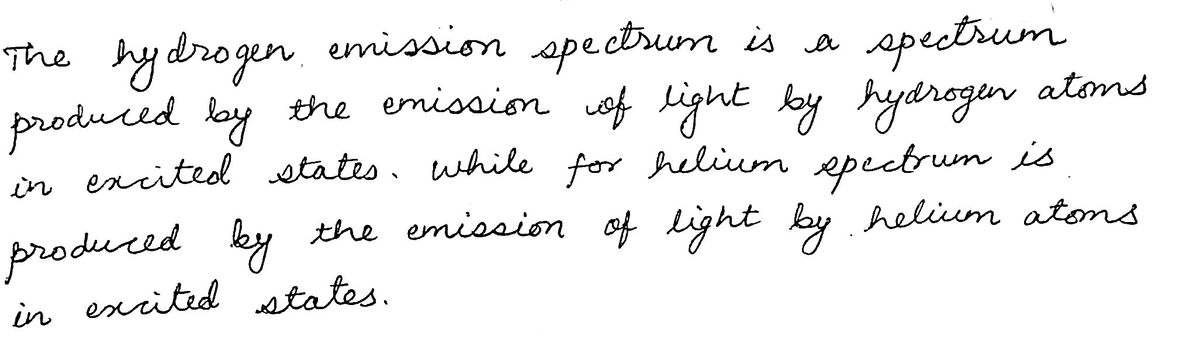 The hydrogen emission spectrum is a spectrum
produced by the emission of light by hydrogen atoms
in excited states. While for helium spectrum is
produced by the emission of light by helium atoms
in excited states.